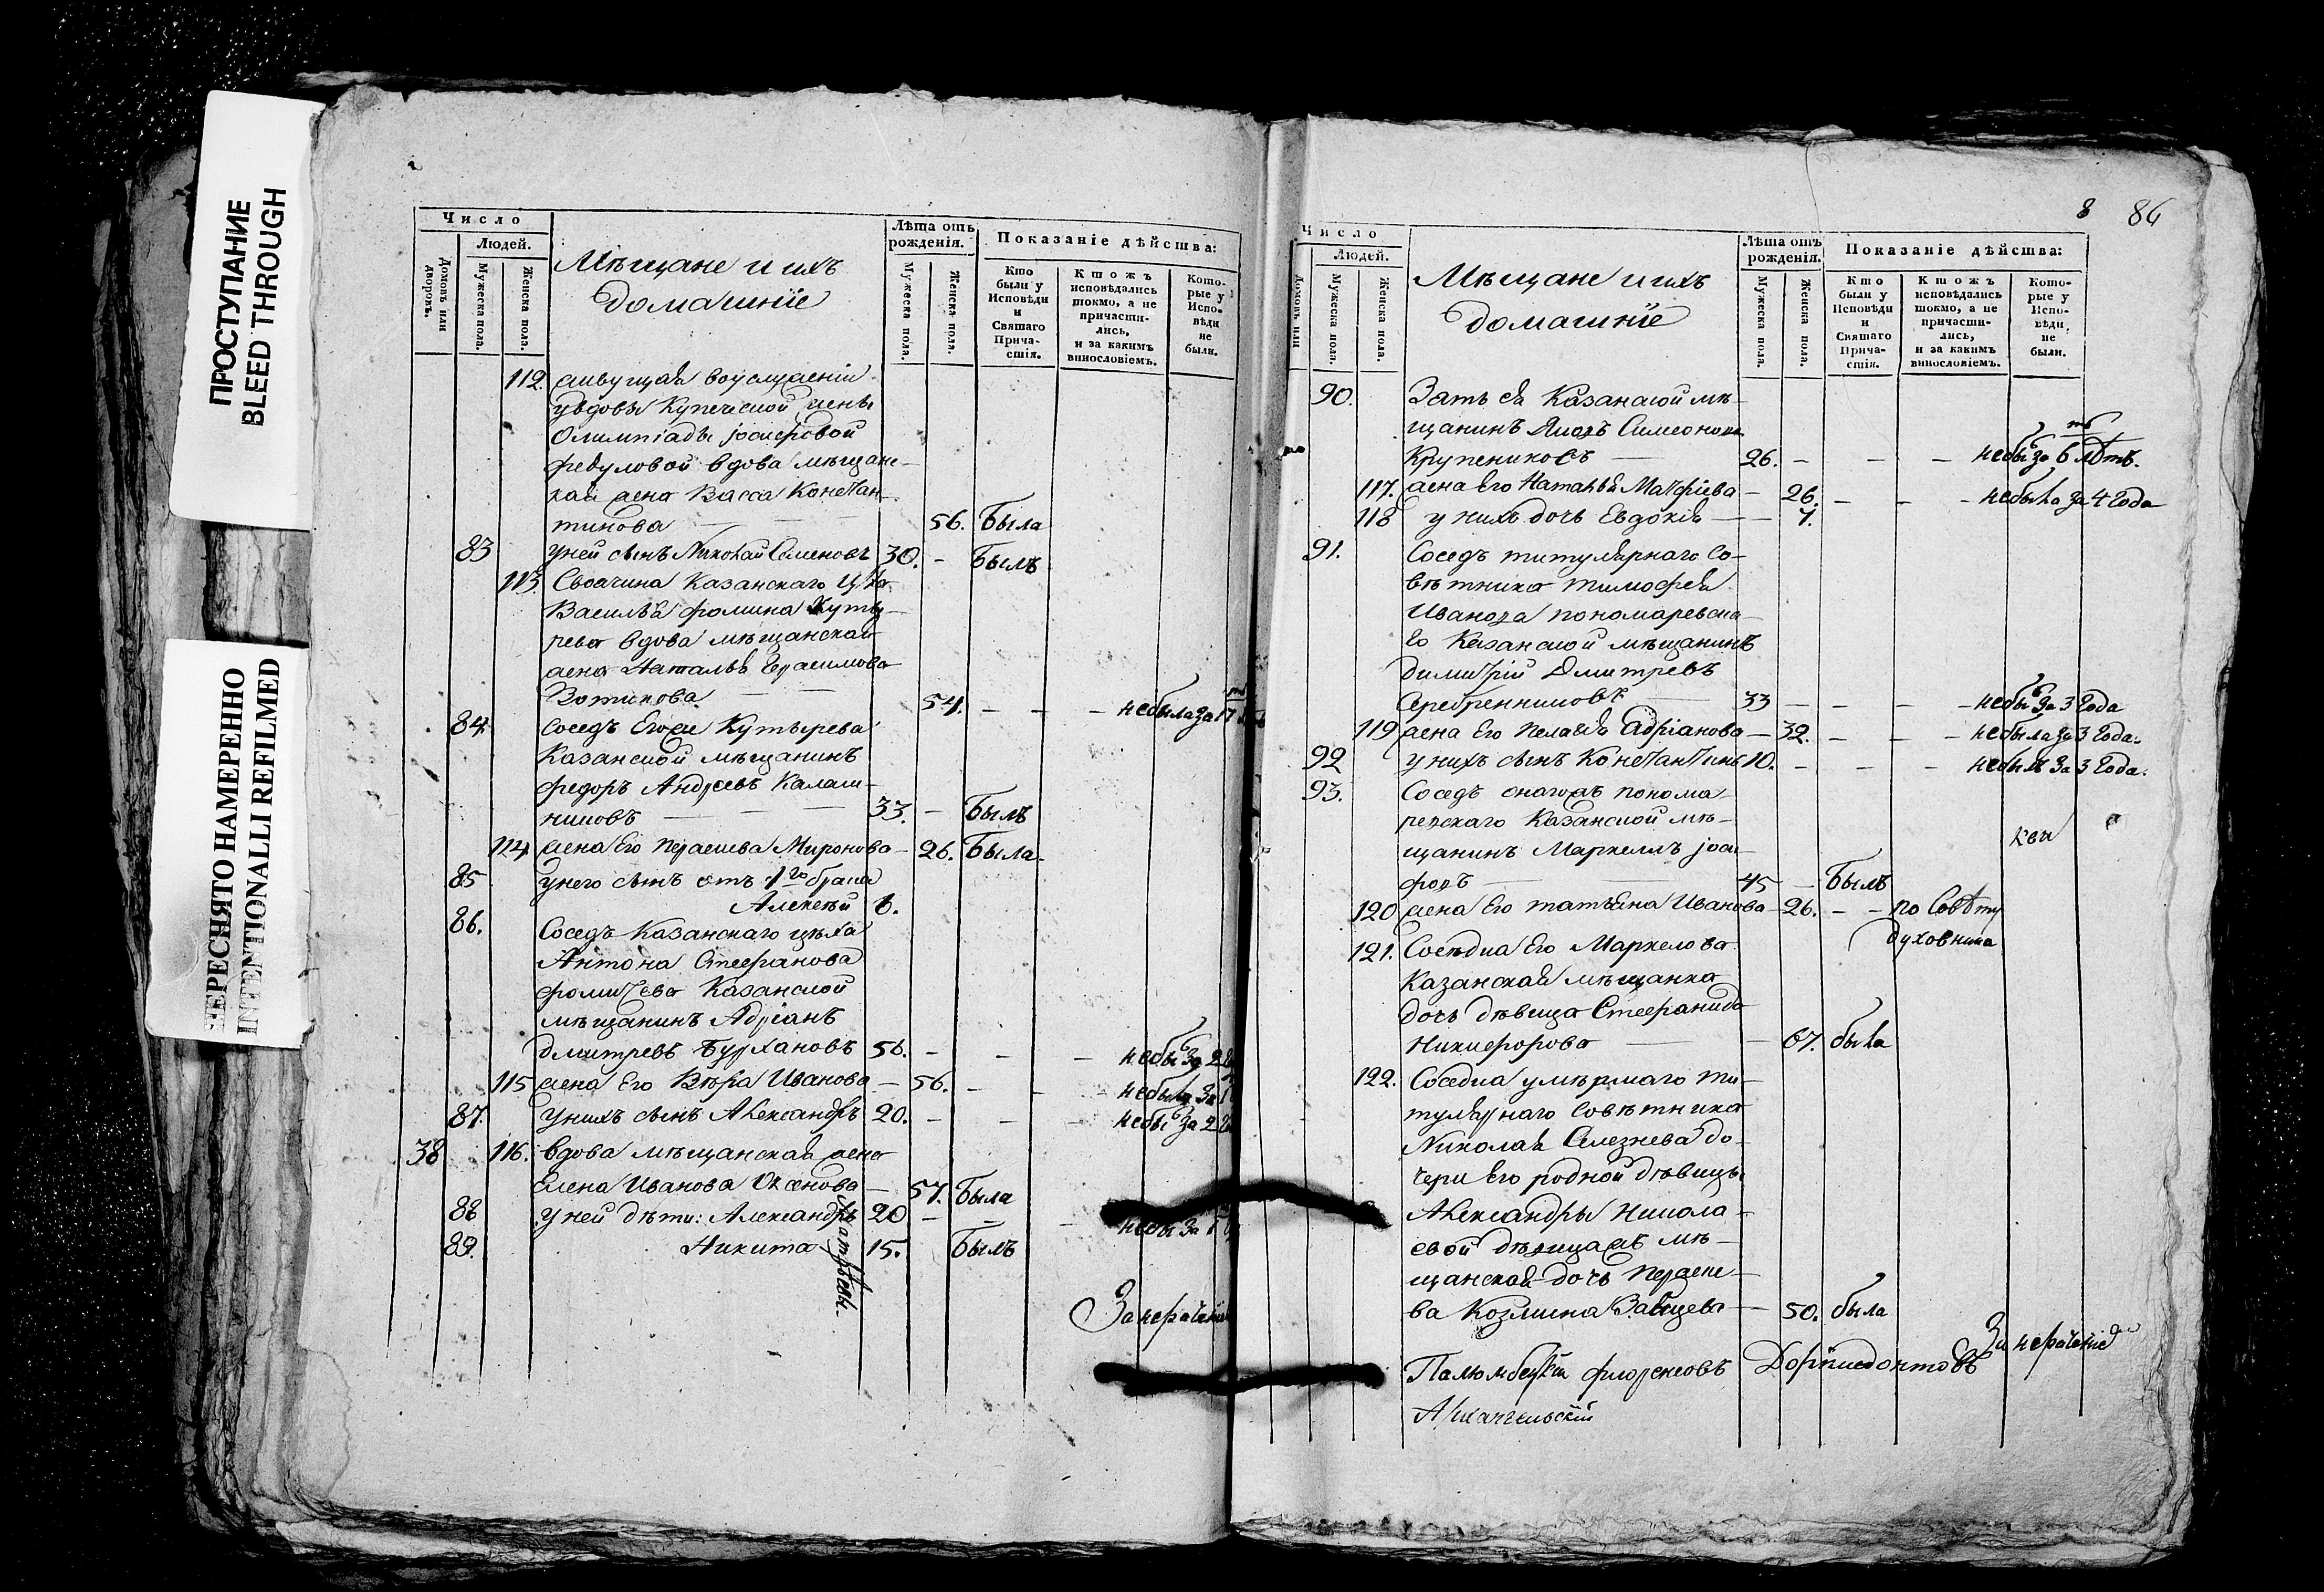 ПРОСТУПАНИЕ
BLEED THROUGH
ПЕРЕСНЯТО НАМЕРЕННО
INTENTIONALLI REFILMED
Число
Людей.
Домовъ или дворовъ.
Мужеска пола.
Женска пола.
Мѣщане и ихъ
домашнiе
Лѣта отъ рожденiя.
Мужеска пола.
Женска пола.
Показанiе дѣйства:
Кто были у Исповѣди и Святаго Прича-стiя.
Ктожъ исповѣдались токмо, а не причасти-лись, и за какимъ винословiемъ.
Кото-рые у Испо-вѣди не были.
112. живущая воуслуженiи
увдовы Купеческой жены
Олимпiады
вдова мѣщанс-
кая жена Васса Констан-
тинова 56. Была
83 уней сынъ Николай Семеновъ 30. - Былъ
113. Своячина Казанскаго
Василья Фомина Куты-
рева вдова мѣщанская
жена Наталья Герасимова
Вотикова 54. - - - небыла за 17
84. сосѣдъ Егоже Кутырева
Казанской мѣщанинъ
Федоръ Андреевъ Калаш-
никовъ 33. - Былъ
114 жена Его Прасковья Миронова - 26. Была
85 унего сынъ отъ 1го брака
Алексей 6.
86. Соседъ Казанскаго цѣха
Антона Стефанова
Фомичева Казанской
мѣщанинъ Адрiанъ
Дмитревъ Бурхановъ 56. - - - небы за 2
115 жена Его Вѣра Иванова - 56. - небыла за 1
87. унихъ сынъ Александръ 20. - - - небы за 2
38 116. вдова мѣщанская жена
Елена Иванова Аксенова - 57. Была
88 уней дѣти: Александръ 20 - - - небы за 1
89. Никита 15. Былъ
За нерачен
8 86
Число
Людей.
Домовъ или
Мужеска пола.
Женска пола.
Мѣщане и ихъ
домашнiе
Лѣта отъ рожденiя.
Мужеска пола.
Женска пола.
Показанiе дѣйства:
Кто были у Исповѣди и Святаго Прича-стiя.
Ктожъ исповѣдались токмо, а не причасти-лись, и за какимъ винословiемъ.
Кото-рые у Испо-вѣди не были.
90. Зять ея Казанской мѣ-
щанинъ Яковъ Симеоновъ
Крупениковъ 26. - - - небы за 6 лѣтъ.
117. жена Его Наталья Матфiева - 26. - - - небыла за 4 года
118 у нихъ дочь Евдокiя - - 7.
91. Соседъ титулярнаго со-
вѣтника Тимофея
Иванова Пономаревска-
го Казанской мѣщанинъ
Димитрiй Дмитревъ
Серебренниковъ 33 - - - небы за 3 года
119 жена Его Пелагея Адрiанова - 32. - - - небыла за 3 года.
92 у нихъ сынъ Константинъ 10. - - - небылъ за 3 года.
93. Соседъ онагожъ Понома-
ревскаго Казанской мѣ-
щанинъ Маркеллъ
45 - Былъ
120 жена Его Татьяна Иванова - 26. - - по Совѣту
духовника
121. Сосѣдка Его Маркелова
Казанская мѣщанка
дочь дѣвица Стефанида
Никифорова - 67. была
122. Соседка умѣршаго ти-
тулярнаго совѣтника
Николая Селезнева до-
чери Его родной дѣвицы
Александры Никола-
евой дѣвицажъ мѣ-
щанская дочь Праско-
вья Козмина - 50. была
За нераченiе
Архангельскiй